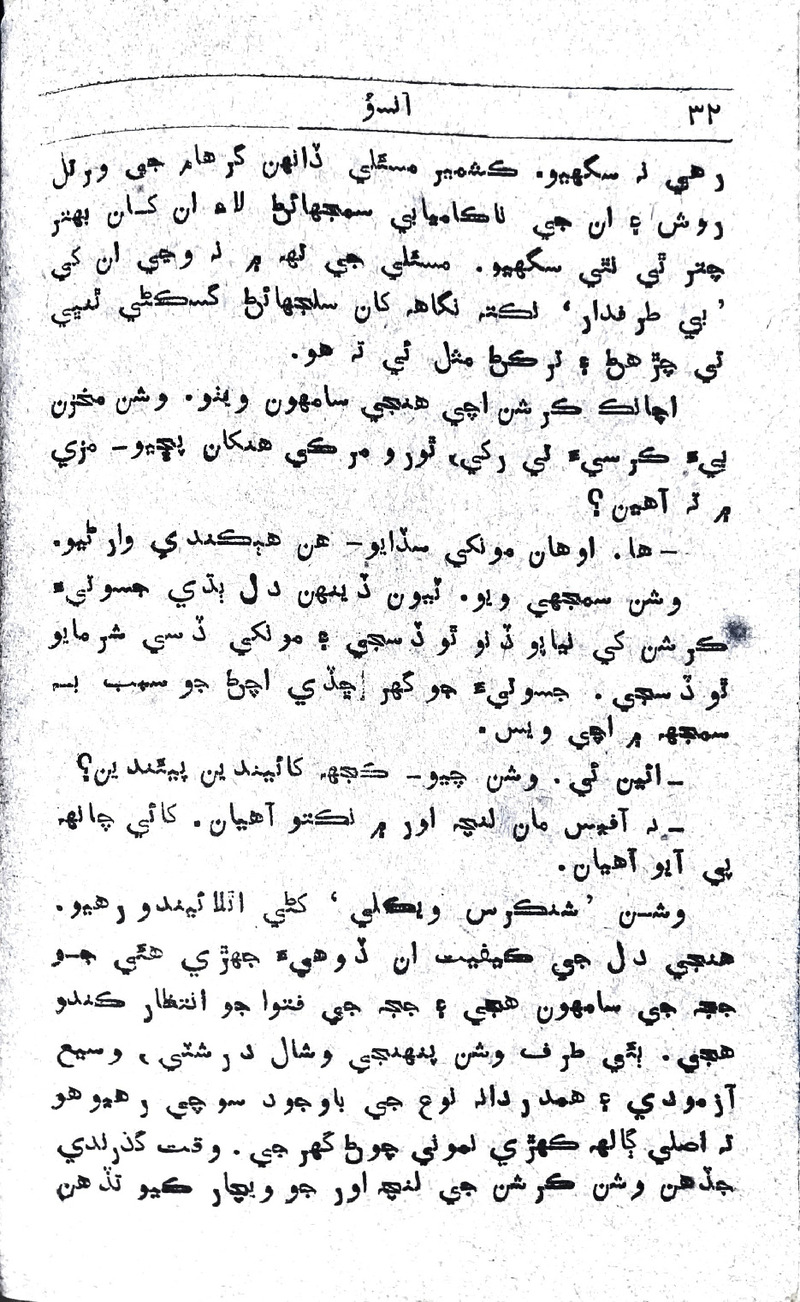 ٣٢ آنسوُ
رهي نہ سگهيو. ڪشمير مسئلي ڏانهن گرهام جي ورتل
روش ۽ ان جي ناڪاميابي سمجهائڻ لاءِ ان کان بهتر
چتر ٿي نٿي سگهيو. مسئلي جي تهہ ۾ نہ وڃي ان کي
’بي طرفدار‘ نڪتہ نگاهہ کان سلجهائڻ گسڪڻي
تي چڙهڻ ۽ ترڪڻ مثل ئي تہ هو.
اچانڪ ڪرشن اچي هنجي سامهون ويٺو. وشن مخزن
ٻيءَ ڪرسيءَ تي رکي، ٿورو مرڪي هنکان پڇيو– مزي
۾ تہ آهين؟
– ها. اوهان مونکي سڏايو– هن هٻڪندي وارڻيو.
وشن سمجهي ويو. ٽيون ڏينهن دل ٻڌي جسوتيءَ
ڪرشن کي نياپو ڏنو ٿو ڏسجي ۽ مونکي ڏسي شرمايو
ٿو ڏسجي. جسوتيءَ جو گهر ڇڏي اچڻ جو سبب بہ
سمجهہ ۾ اچي ويس.
– ائين ئي. وشن چيو– ڪجهہ کائيندين پيئندين؟
– نہ آفيس مان لنچ اور ۾ نڪتو آهيان. کائي چانهہ
پي آيو آهيان.
وشن ’شنڪرس ويڪلي‘ کڻي اٿلائيندو رهيو.
هنجي دل جي ڪيفيت ان ڏوهيءَ جهڙي هئي جو
ججہ جي سامهون هجي ۽ ججہ جي فتوا جو انتظار ڪندو
هجي. ٻئي طرف وشن پنهنجي وشال درشٽي، وسيع
آزمودي ۽ همدرداڻہ نوع جي باوجود سوچي رهيو هو
تہ اصلي ڳالهہ ڪهڙي نموني چوڻ گهرجي. وقت گذرندي
جڏهن وشن ڪرشن جي لنچ اور جو ويچار ڪيو تڏهن